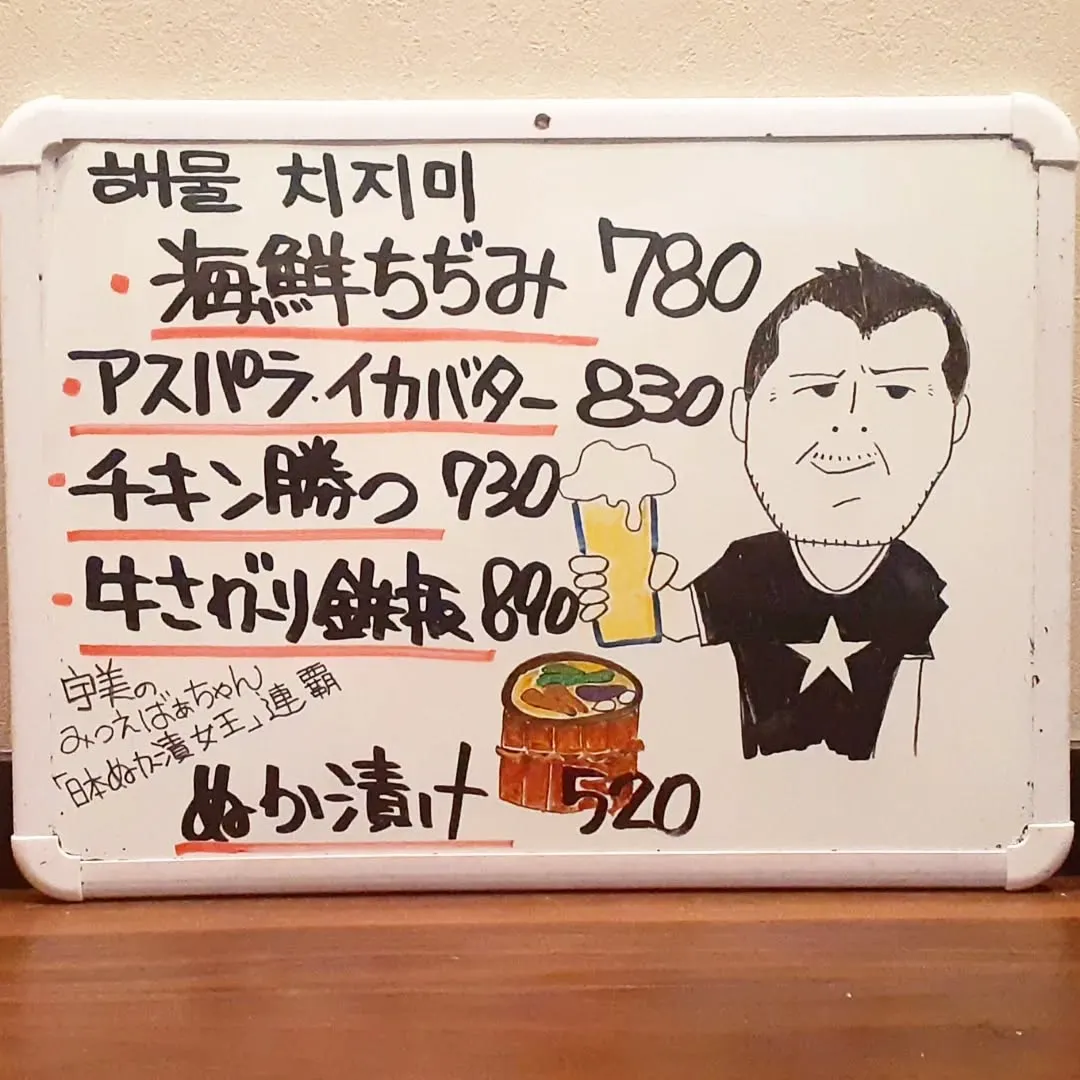 해물 치지미
・海鮮ちぢみ 780
・アスパラ・イカバター 830
・チキン勝つ 730
・牛さがり鉄板 890
宇美の
みつえばぁちゃん
「日本ぬか漬女王」連覇
ぬか漬け 520